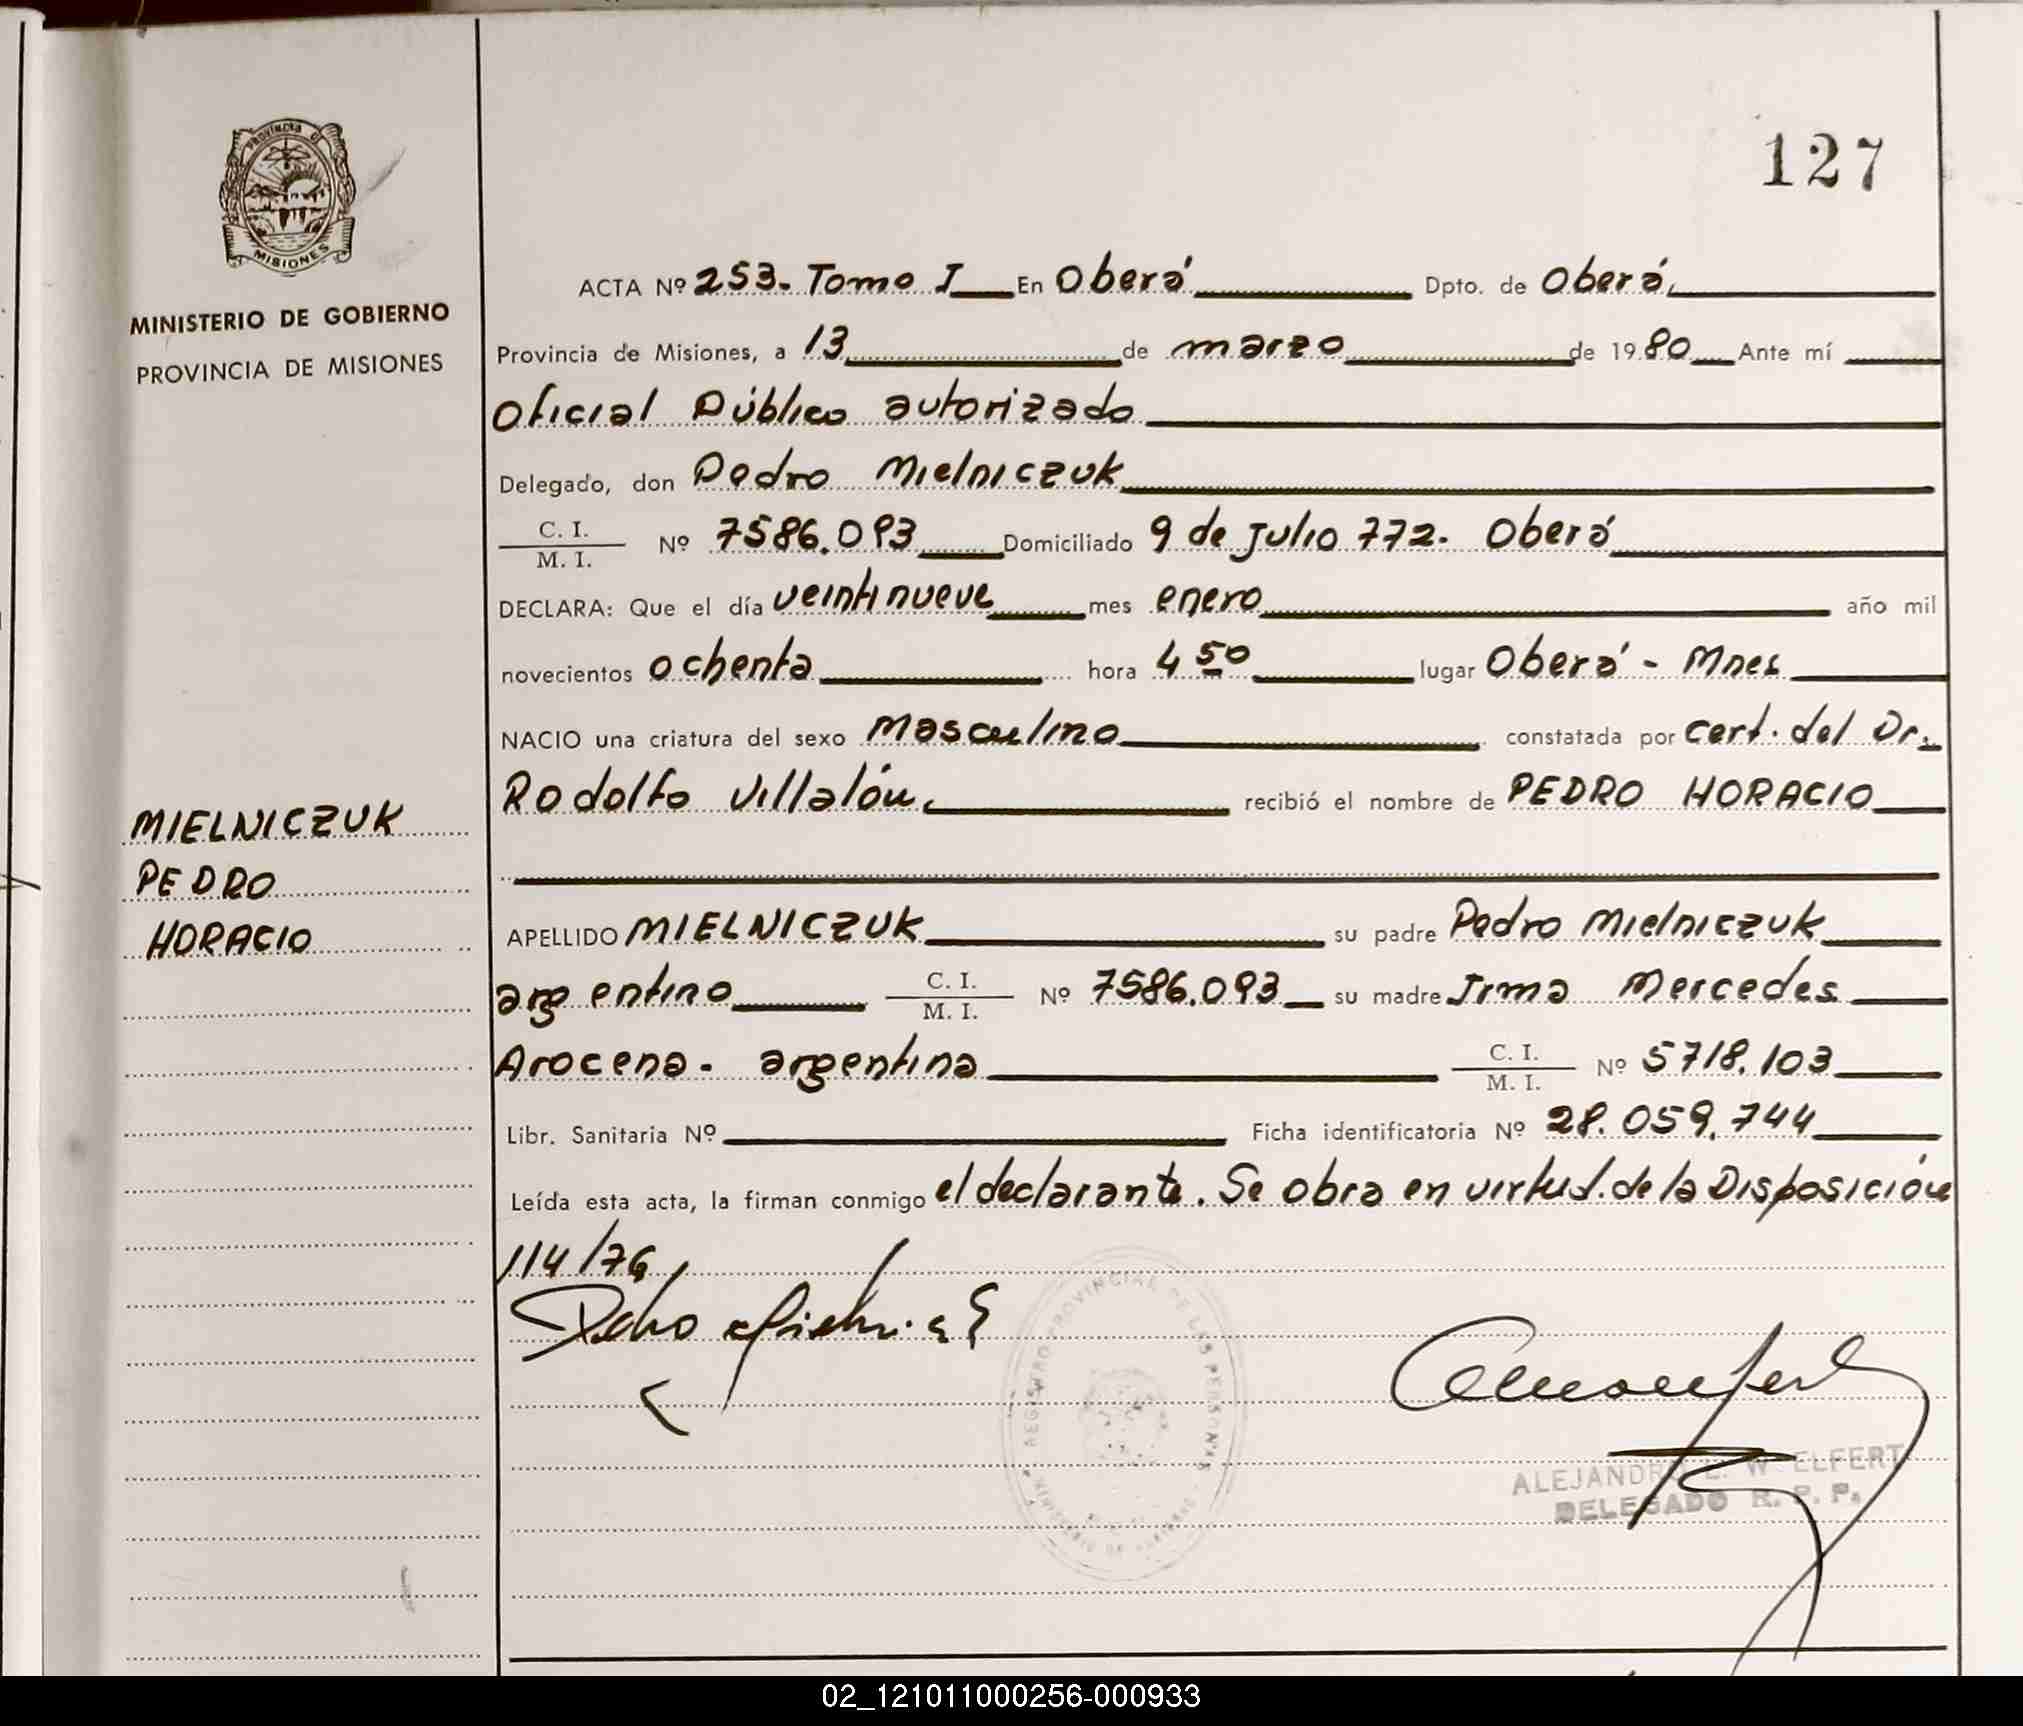 127
PROVINCIA D
MISIONES
MINISTERIO DE GOBIERNO
PROVINCIA DE MISIONES
MIELNICZUK
PEDRO
HORACIO
ACTA Nº 253. Tomo I En Oberá Dpto. de Oberá,
Provincia de Misiones, a 13 de marzo de 1980 Ante mí
Oficial Público autorizado
Delegado, don Pedro Mielniczuk
C. I.
M. I. Nº 7586.093 Domiciliado 9 de Julio 772. Oberá
DECLARA: Que el día veintinueve mes enero año mil
novecientos ochenta hora 4 50 lugar Oberá - Mnes
NACIO una criatura del sexo masculino constatada por cert. del Dr.
Rodolfo Villalón, recibió el nombre de PEDRO HORACIO
APELLIDO MIELNICZUK su padre Pedro Mielniczuk
argentino C. I. M. I. Nº 7586.093 su madre Irma Mercedes
Arocena - argentina C. I. M. I. Nº 5718.103
Libr. Sanitaria Nº Ficha identificatoria Nº 28.059.744
Leída esta acta, la firman conmigo el declarante. Se obra en virtud. de la Disposición
114/76
REGISTRO PROVINCIAL DE LAS PERSONAS
ALEJANDRO E. W. ELFERT
DELEGADO R. P. P.
02_121011000256-000933